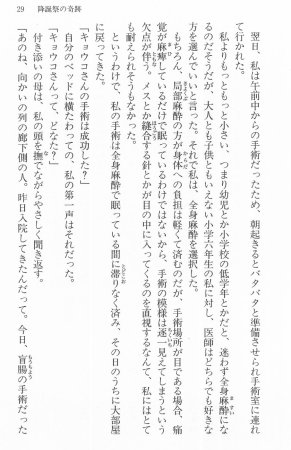 29　降誕祭の奇跡
翌日、私は午前中からの手術だったため、朝起きるとバタバタと準備させられ手術室に連れ
て行かれた。
私よりもっともっと小さい、つまり幼児とか小学校の低学年とかだと、迷わず全身麻酔にな
るのだそうだが、大人とも子供ともいえない小学六年生の私に対し、医師はどちらでも好きな
方を選んでいいと言った。それで私は、全身麻酔を選択した。
もちろん、局部麻酔の方が身体への負担は軽くて済むのだが、手術場所が目である場合、痛
覚が麻痺しているだけで眠っているわけではないから、手術の模様は逐一見えてしまうという
欠点が伴う。メスとか縫合する針とかが目の中に入ってくるのを直視するなんて、私にはとて
も耐えられそうもなかった。
というわけで、私の手術は全身麻酔で眠っている間に滞りなく済み、その日のうちに大部屋
に戻ってきた。
「キョウコさんの手術は成功した？」
自分のベッドに横たわっての、私の第一声はそれだった。
「キョウコさんって、どなた？」
付き添いの母は、私の頭を撫でながらやさしく聞き返す。
「あのね、向かいの列の廊下側の人。昨日入院してきたんだって。今日、盲腸の手術だった